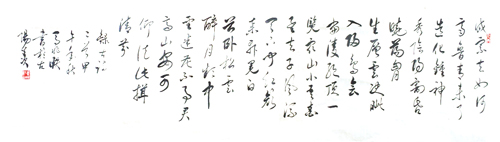 岱宗夫如何
齊魯青未了
造化鍾神
秀陰陽割昏
曉蕩胸
生層雲決眦
入歸鳥會
當凌絕頂一
覽眾山小吾愛
孟夫子風流
天下聞紅顏
棄軒冕白
首卧松雲
醉月頻中
聖迷花不事君
高山安可
仰徒此揖
清芬